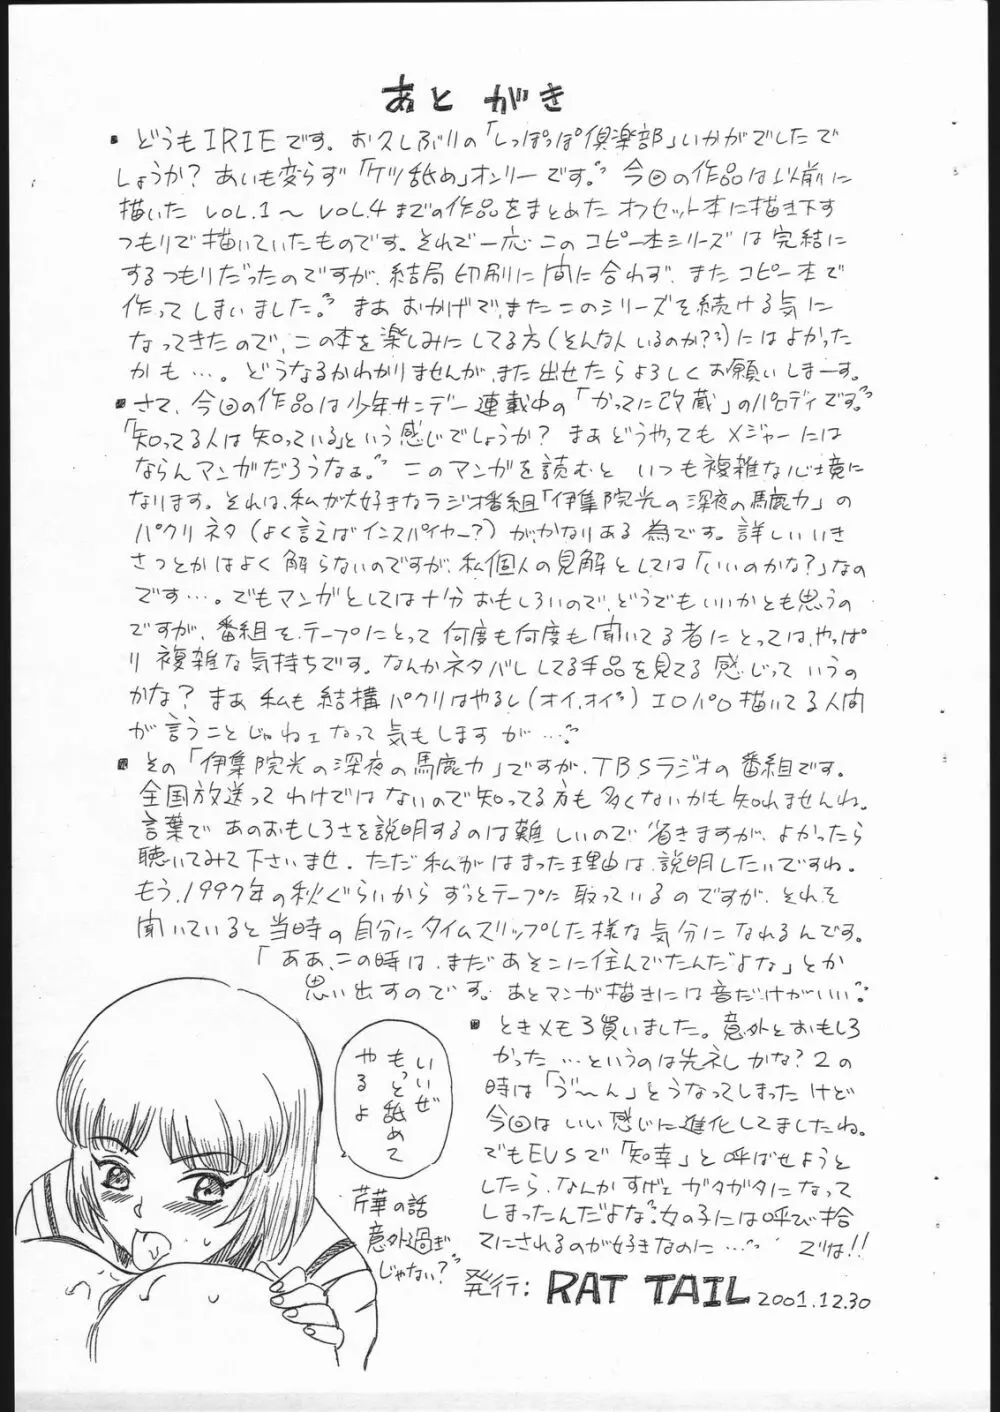 あとがき
・どうもIRIEです。お久しぶりの「しっぽっぽ倶楽部」いかがでしたで
しょうか？あいも変らず「ケツ舐め」オンリーです。今回の作品は以前に
描いた VOL.1〜VOL.4までの作品をまとめたオフセット本に描き下す
つもりで描いていたものです。それで一応このコピー本シリーズは完結に
するつもりだったのですが、結局印刷に間に合わず、またコピー本で
作ってしまいました。まあおかげで、またこのシリーズを続ける気に
なってきたので、この本を楽しみにしてる方（そんな人いるのか？）にはよかった
かも…。どうなるかわかりませんが、また出せたらよろしくお願いしまーす。
・さて、今回の作品は少年サンデー連載中の「かってに改蔵」のパロディです。
「知ってる人は知っている」という感じでしょうか？まぁどうやってもメジャーには
ならんマンガだろうなぁ。このマンガを読むといつも複雑な心境に
なります。それは、私が大好きなラジオ番組「伊集院光の深夜の馬鹿力」の
パクリネタ（よく言えばインスパイヤー？）が、かなりある為です。詳しいいき
さつとかはよく解らないのですが、私個人の見解としては「いいのかな？」なの
です…。でもマンガとしては十分おもしろいので、どうでもいいかとも思うの
ですが、番組をテープにとって何度も何度も聞いてる者にとっては、やっぱ
り複雑な気持ちです。なんかネタバレしてる手品を見てる感じっていうの
かな？まぁ私も結構パクリはやるし（オイ、オイ）エロパロ描いてる人間
が言うことじゃねェなって気もしますが…。
・その「伊集院光の深夜の馬鹿力」ですが、TBSラジオの番組です。
全国放送ってわけではないので知ってる方も多くないかも知れませんね。
言葉であのおもしろさを説明するのは難しいので省きますが、よかったら
聴いてみて下さいませ。ただ私がはまった理由は、説明したいですね。
もう、1997年の秋ぐらいからずっとテープに取っているのですが、それを
聞いていると当時の自分にタイムスリップした様な気分になれるんです。
「ああ、この時は、まだあそこに住んでたんだよな」とか
思い出すのです。あとマンガ描きには音だけがいい。
・ときメモ3買いました。意外とおもしろ
かった…というのは失礼かな？2の
時は「う゛〜ん」とうなってしまったけど
今回はいい感じに進化してましたね。
でもEVSで「知幸」と呼ばせようと
したら、なんかすげェガタガタになって
しまったんだよな。女の子には呼び捨
てにされるのが好きなのに…。 でわ!!
いいぜ
もっと舐めて
やるよ
芹華の話
意外過ぎ
じゃない？
発行：RAT TAIL 2001.12.30